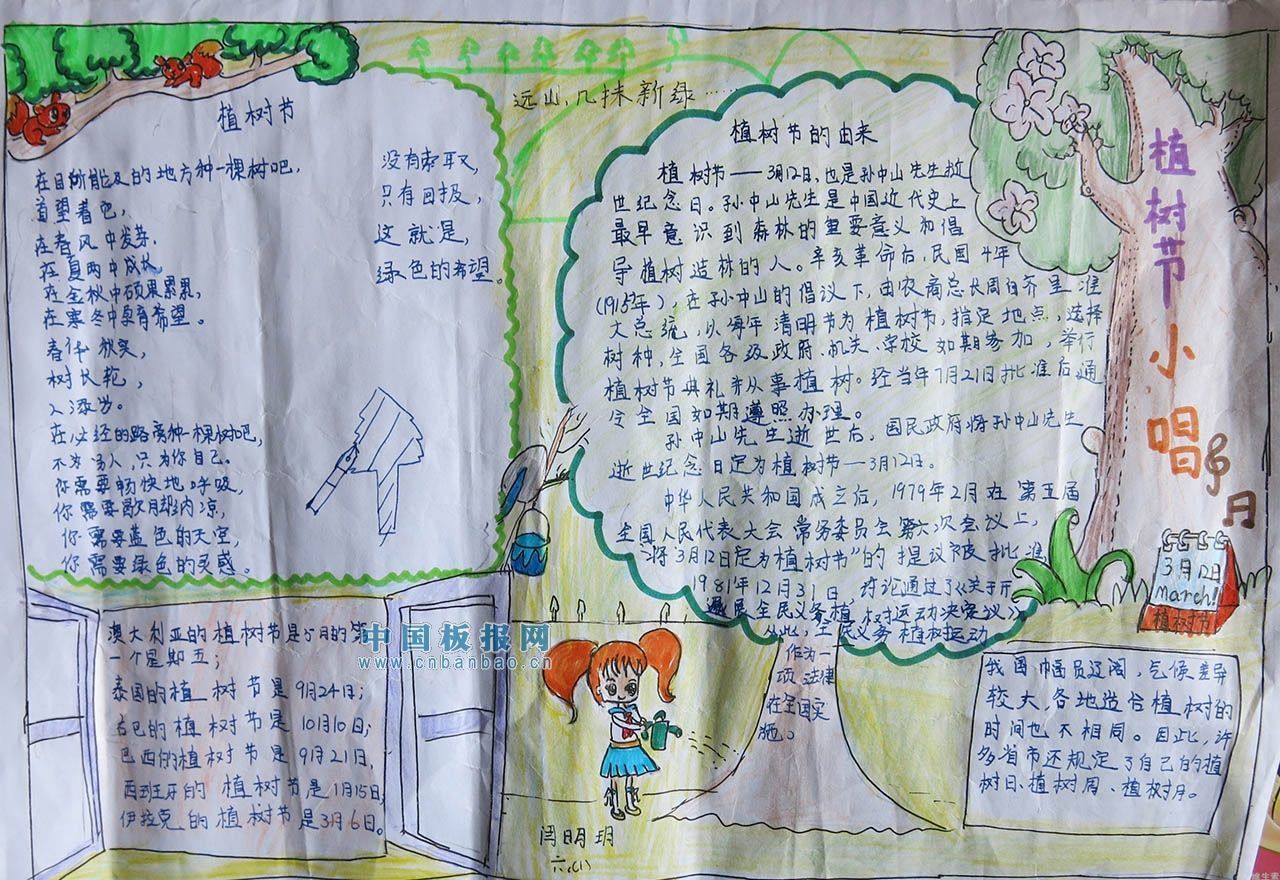 植树节
在目所能及的地方种一棵树吧,
着望着吧,
在春风中发芽,
在夏雨中成长,
在金秋中硕果累累,
在寒冬中孕育希望。
春华秋实,
树长轮,
人添岁。
在必经的路旁种一棵树吧,
不为别人,只为你自己。
你需要畅快地呼吸,
你需要歇脚纳凉,
你需要蓝色的天空,
你需要绿色的灵感。
没有索取,
只有回报,
这就是,
绿色的希望。
远山,几抹新绿……
植树节的由来
植树节——3月12日,也是孙中山先生逝
世纪念日。孙中山先生是中国近代史上
最早意识到森林的重要意义和倡
导植树造林的人。辛亥革命后,民国4年
(1915年),在孙中山的倡议下,由农商总长周自齐呈准
大总统,以每年清明节为植树节,指定地点,选择
树种,全国各级政府、机关、学校如期参加,举行
植树节典礼并从事植树。经当年7月21日批准后通
令全国如期遵照办理。
孙中山先生逝世后,国民政府将孙中山先生
逝世纪念日定为植树节——3月12日。
中华人民共和国成立后,1979年2月在第五届
全国人民代表大会常务委员会第六次会议上,
“将3月12日定为植树节”的提议被批准
1981年12月31日 讨论通过了《关于开
展全民义务植树运动决议》
从此,全民义务植树运动
作为一
项法律
在全国实
施。
植树节小唱
3月12日
March!
植树节
澳大利亚的植树节是5月的第
一个星期五;
泰国的植树节是9月24日;
古巴的植树节是10月10日;
巴西的植树节是9月21日,
西班牙的植树节是1月15日,
伊拉克的植树节是3月6日。
中国板报网
www.cnbanbao.cn
闫明玥
六(1)
我国幅员辽阔,气候差异
较大,各地适合植树的
时间也不相同。因此,许
多省市还规定了自己的植
树日、植树周、植树月。